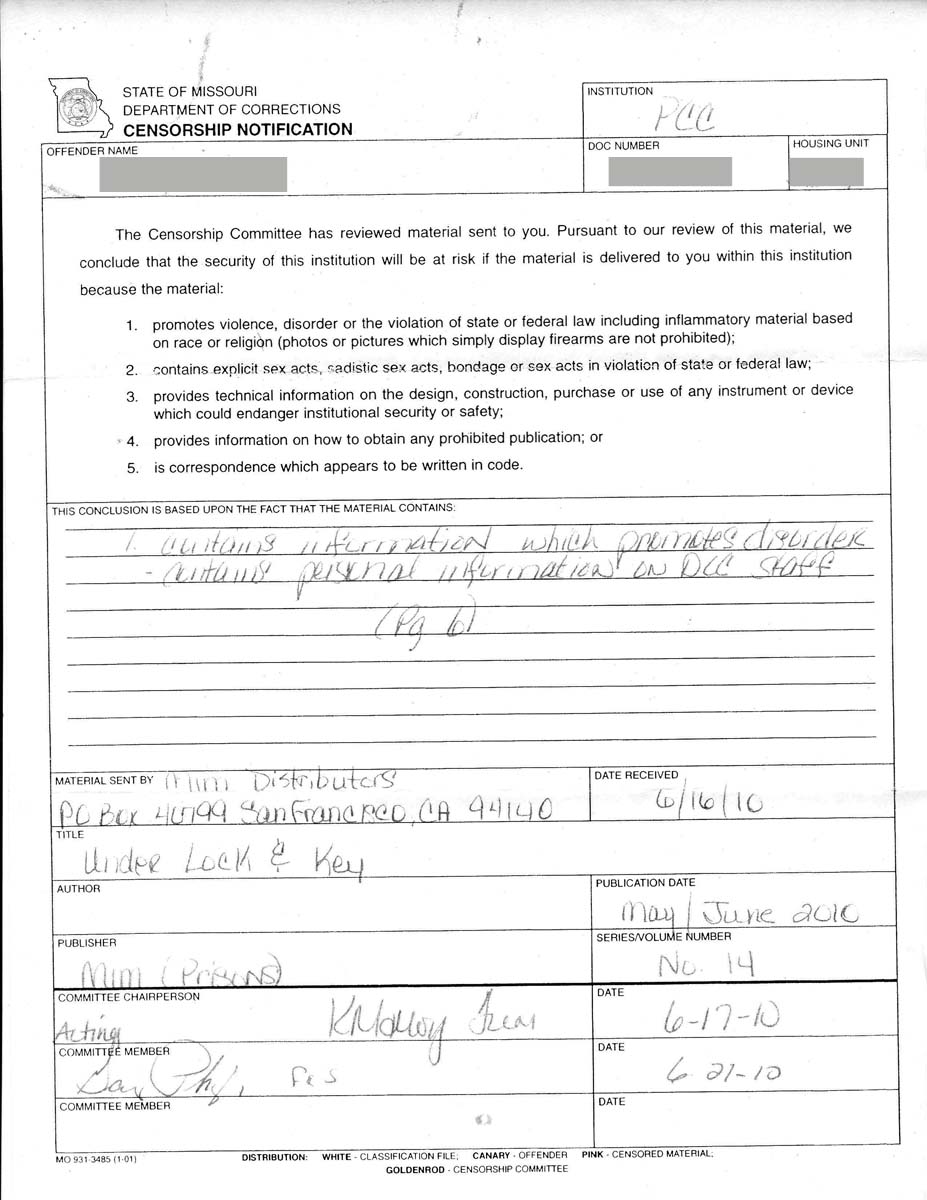 STATE OF MISSOURI
DEPARTMENT OF CORRECTIONS
CENSORSHIP NOTIFICATION
INSTITUTION
PCC
OFFENDER NAME
DOC NUMBER
HOUSING UNIT
The Censorship Committee has reviewed material sent to you. Pursuant to our review of this material, we
conclude that the security of this institution will be at risk if the material is delivered to you within this institution
because the material:
1. promotes violence, disorder or the violation of state or federal law including inflammatory material based
on race or religion (photos or pictures which simply display firearms are not prohibited);
2. contains explicit sex acts, sadistic sex acts, bondage or sex acts in violation of state or federal law;
3. provides technical information on the design, construction, purchase or use of any instrument or device
which could endanger institutional security or safety;
4. provides information on how to obtain any prohibited publication; or
5. is correspondence which appears to be written in code.
THIS CONCLUSION IS BASED UPON THE FACT THAT THE MATERIAL CONTAINS:
1. contains information which promotes disorder
- contains personal information on DOC staff
(Pg 6)
MATERIAL SENT BY Mim Distributors
PO Box 40799 San Francisco, CA 94140
DATE RECEIVED
6/16/10
TITLE
Under Lock & Key
AUTHOR
PUBLICATION DATE
May/June 2010
PUBLISHER
Mim (Prisons)
SERIES/VOLUME NUMBER
No. 14
COMMITTEE CHAIRPERSON
Acting
DATE
6-17-10
COMMITTEE MEMBER
DATE
6-21-10
COMMITTEE MEMBER
DATE
MO 931-3485 (1-01)
DISTRIBUTION: WHITE - CLASSIFICATION FILE; CANARY - OFFENDER PINK - CENSORED MATERIAL;
GOLDENROD - CENSORSHIP COMMITTEE